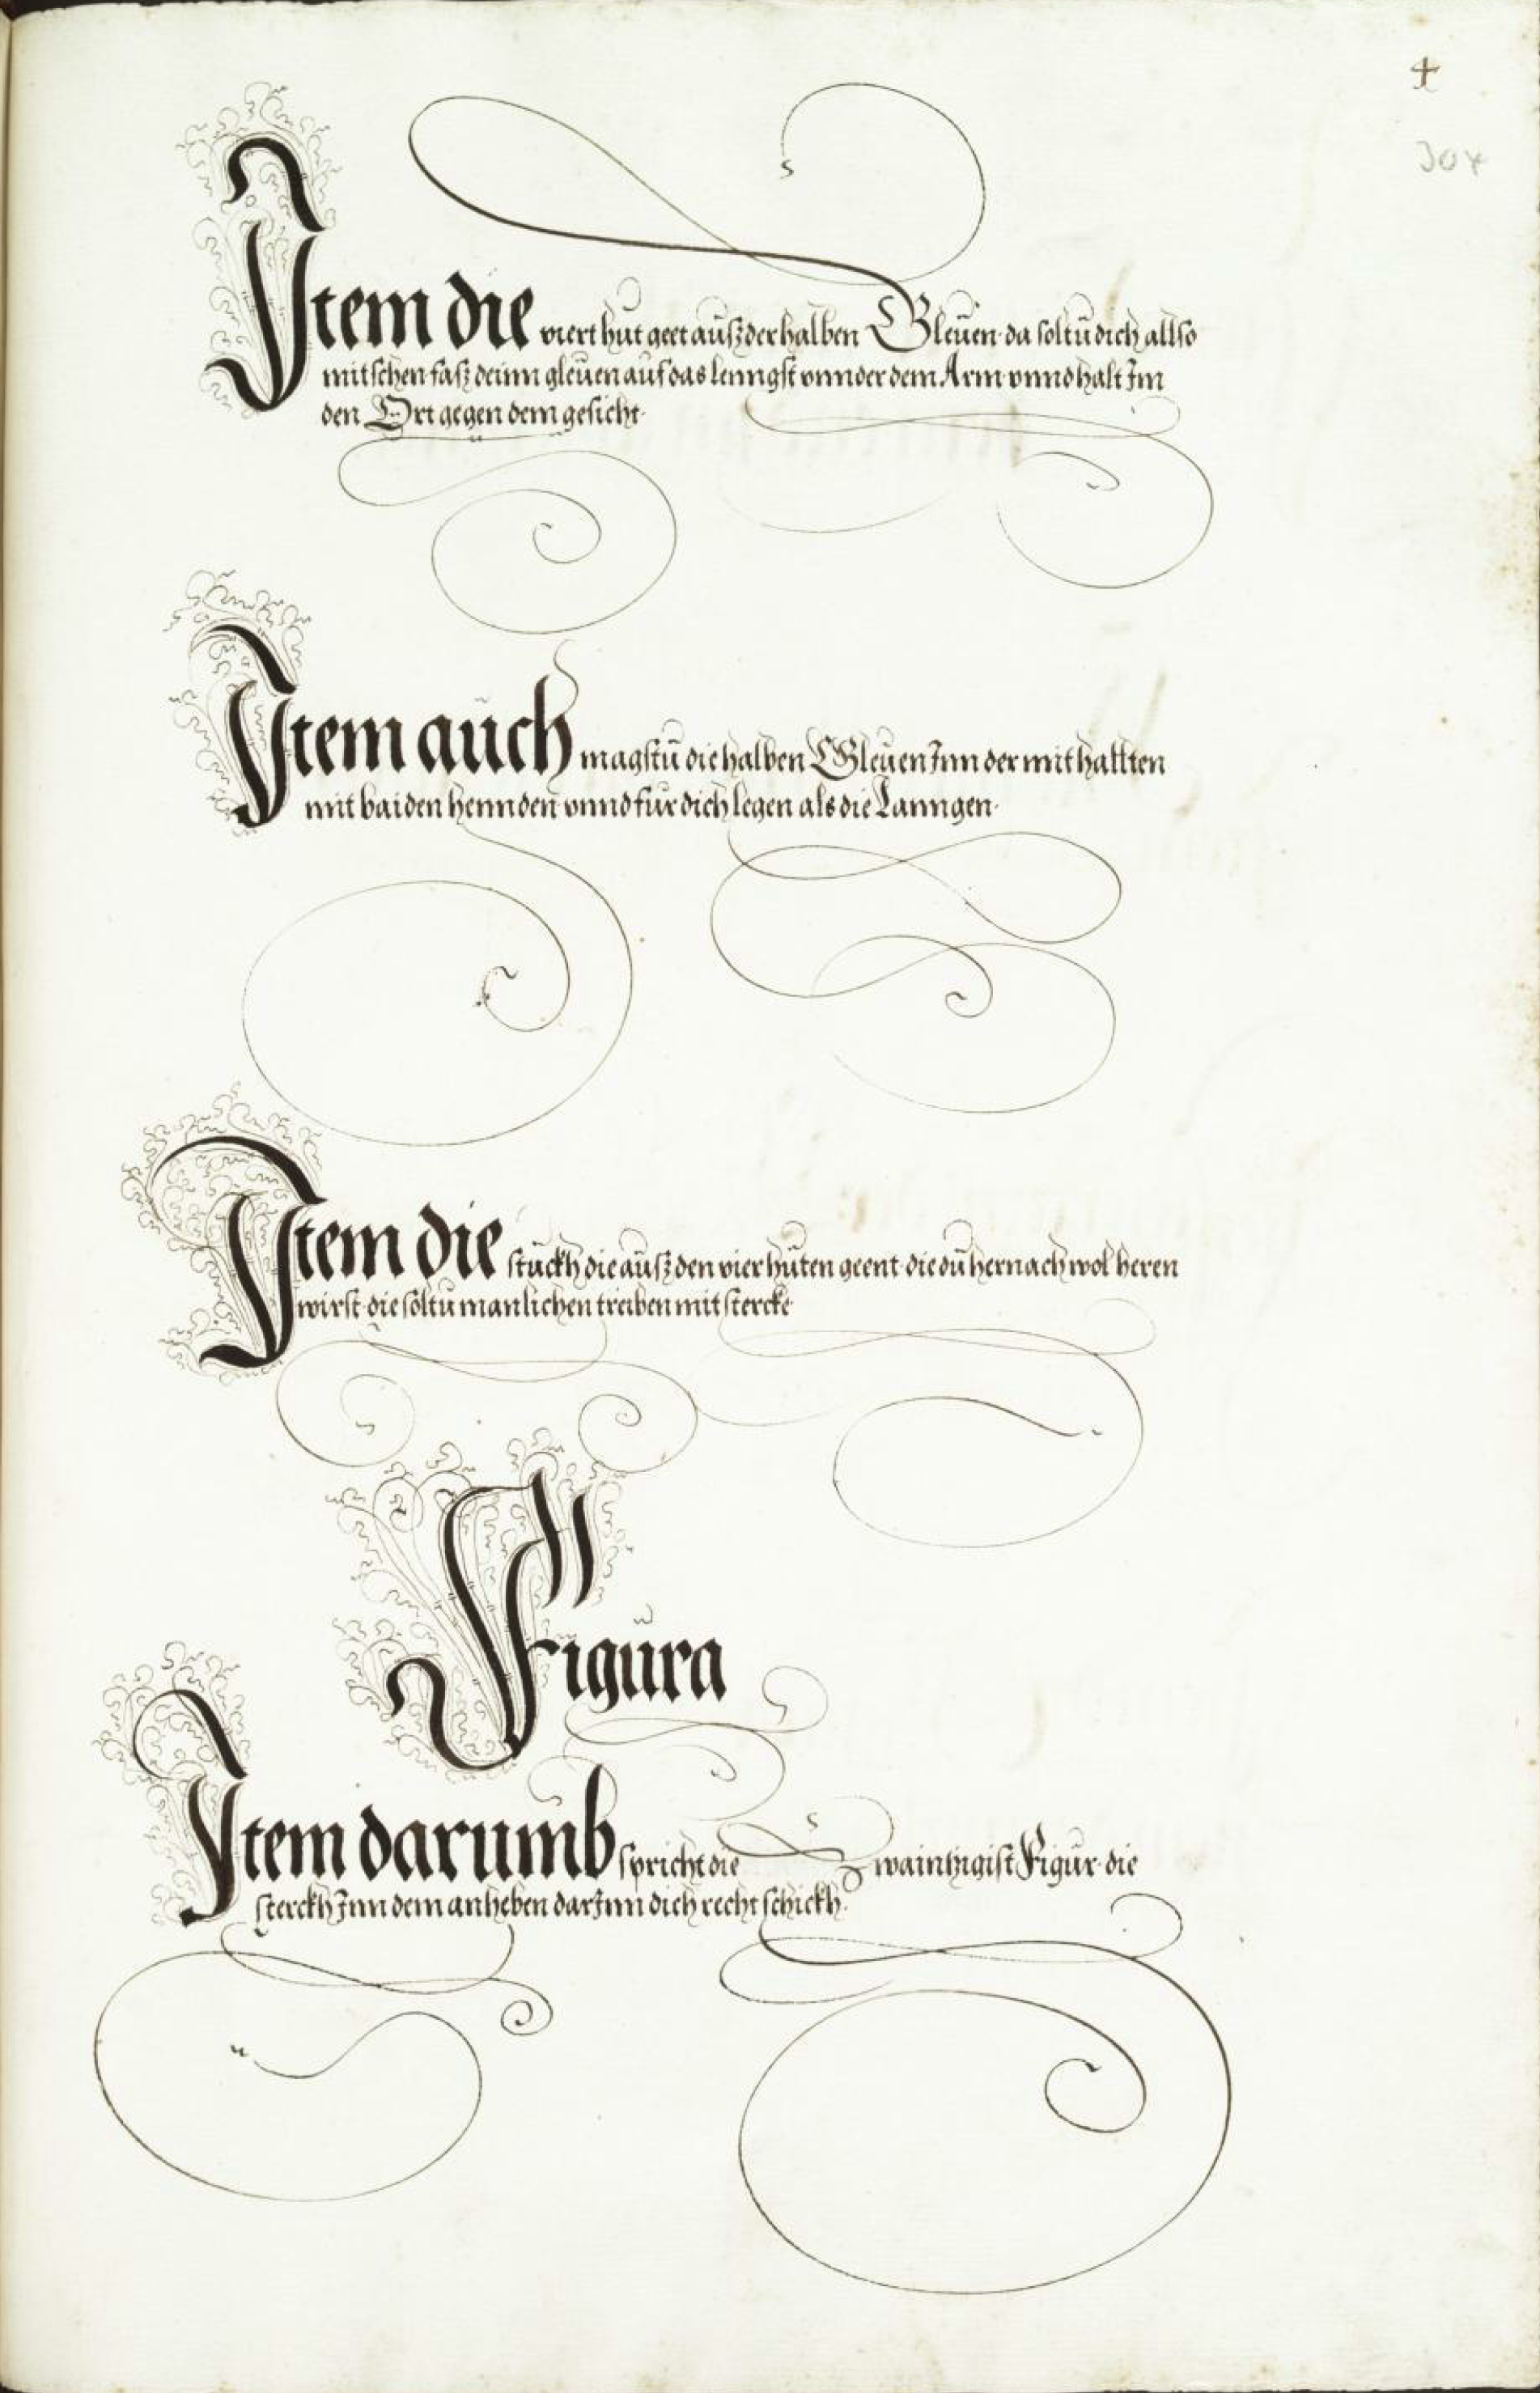 304
Item die viert hůt geet aůsz der halben Gleůen da soltů dich allso
mitschen fasz deinn gleůen auf das lenngst vnnder dem Arm vnnd halt Im
den Ort gegen dem gesicht
Item aůch magstů die halben Gleůen Inn der mit hallten
mit baiden hennden vnnd fůr dich legen als die Lanngen
Item die stůckh die aůsz den vier hůten geent die dů hernach wol heren
wirst die soltů manlichen treiben mit stercke
Figůra
Item darumb spricht die Zwaintzigist Figůr die
sterckh Inn dem anheben darInn dich recht schickh